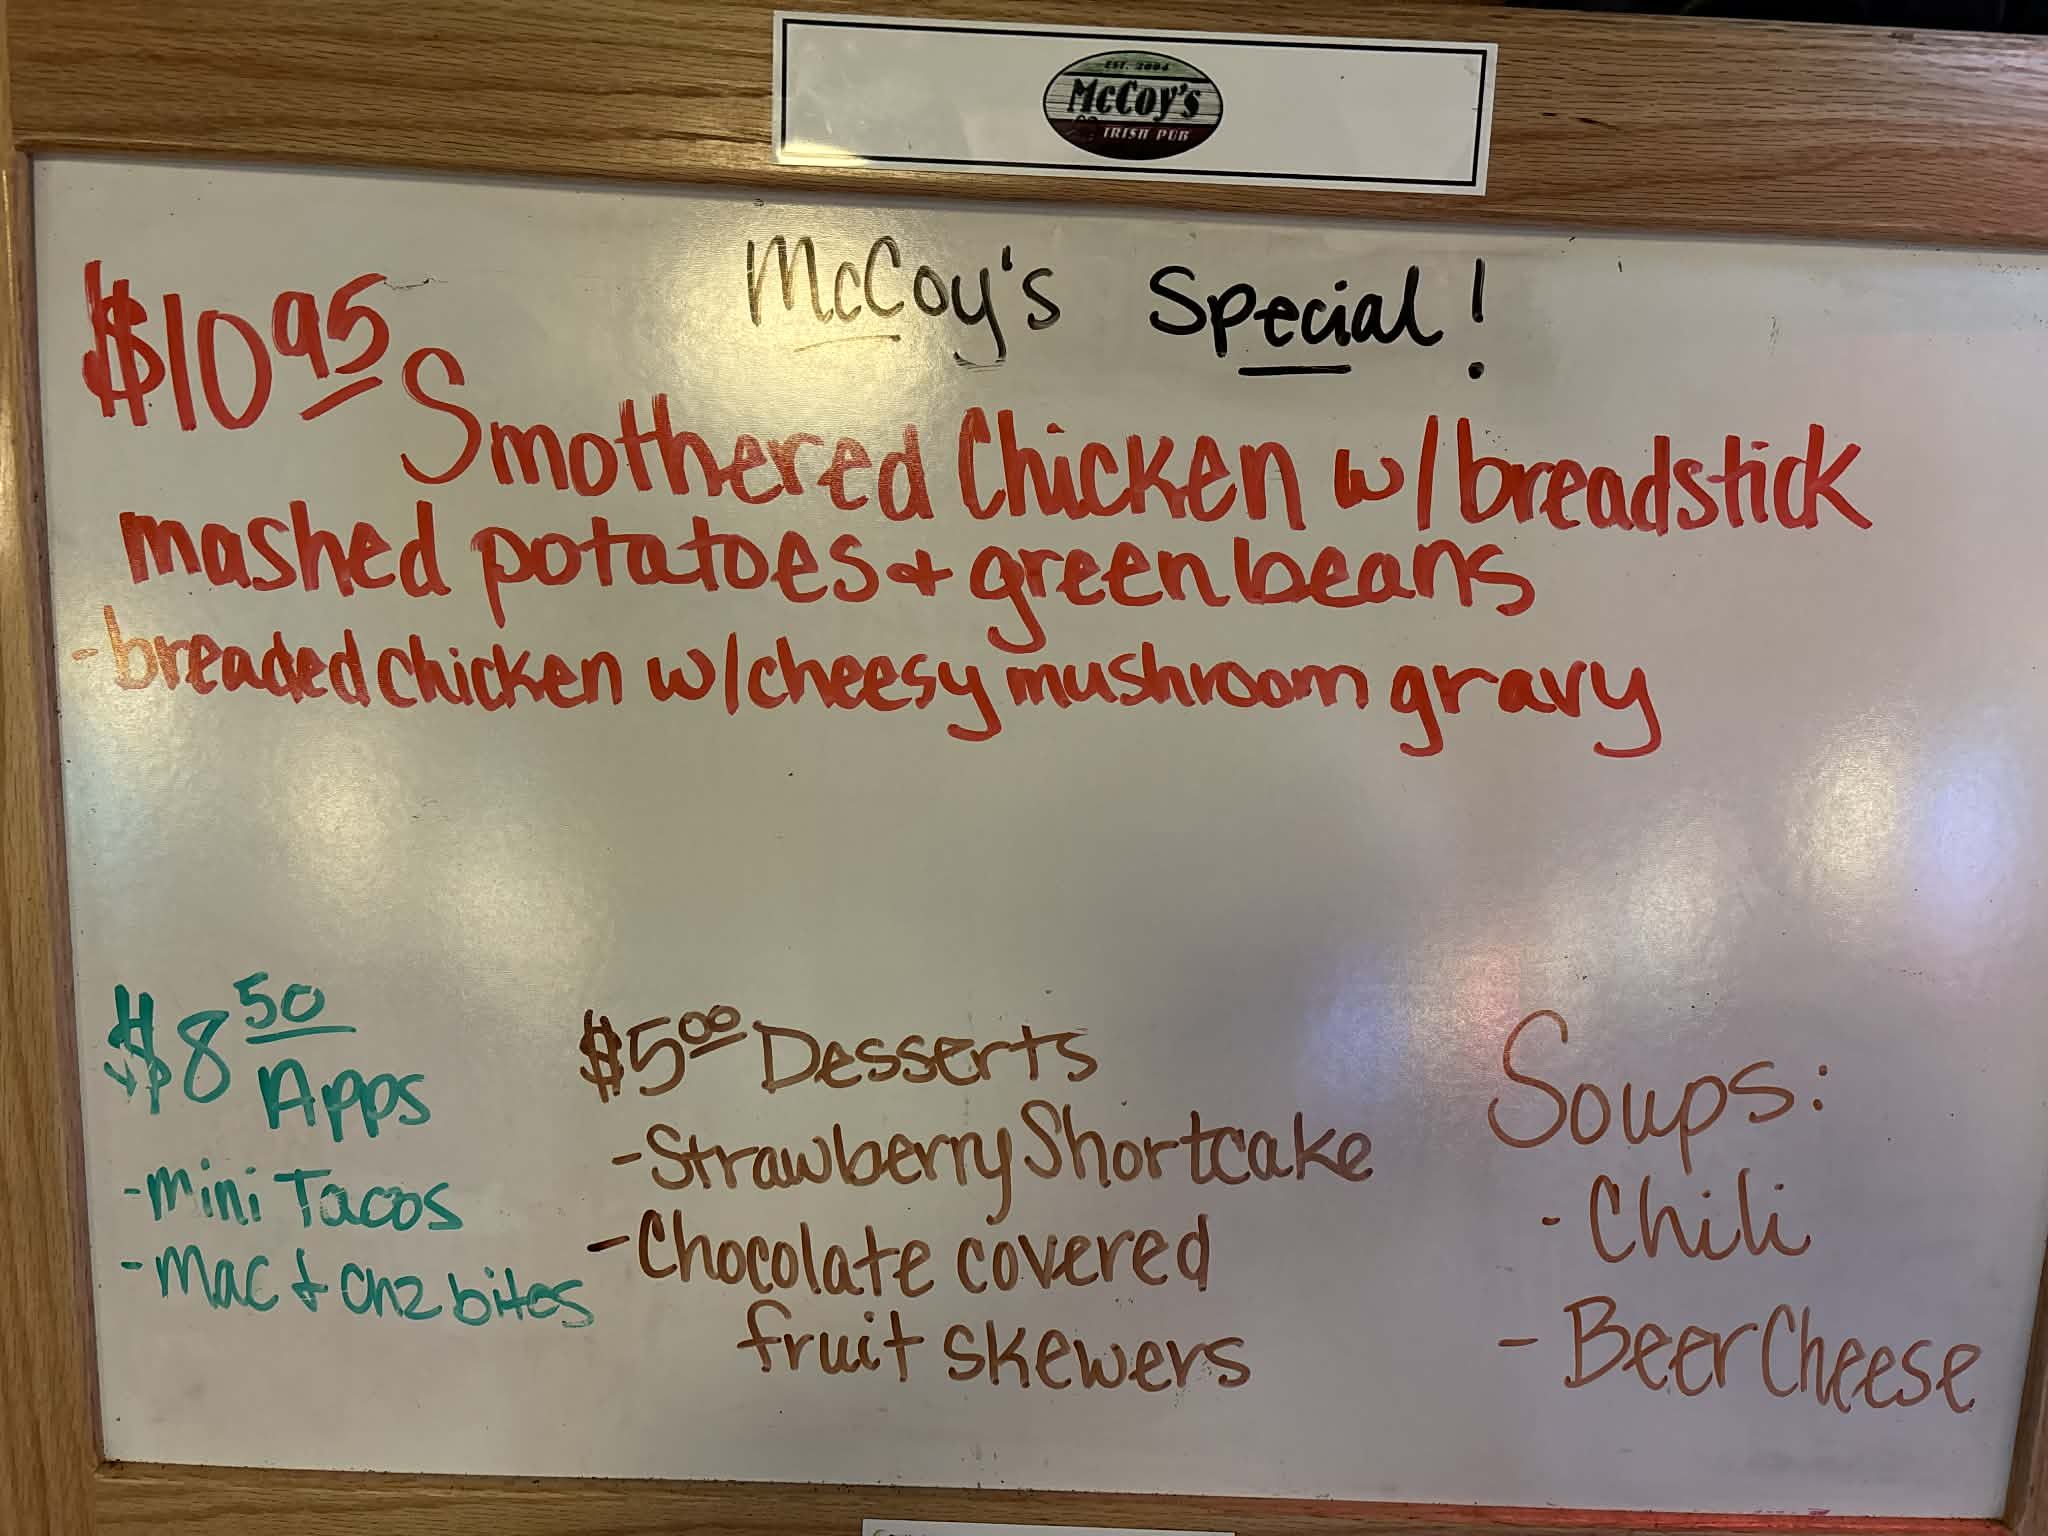 EST. 2004
McCoy's
IRISH PUB
McCoy's Special!
$10.95 Smothered Chicken w/breadstick
mashed potatoes + green beans
- breaded chicken w/cheesy mushroom gravy
$8.50
Apps
- Mini Tacos
- Mac + Chz bites
$5.00 Desserts
- Strawberry Shortcake
- Chocolate covered
fruit skewers
Soups:
- Chili
- Beer Cheese